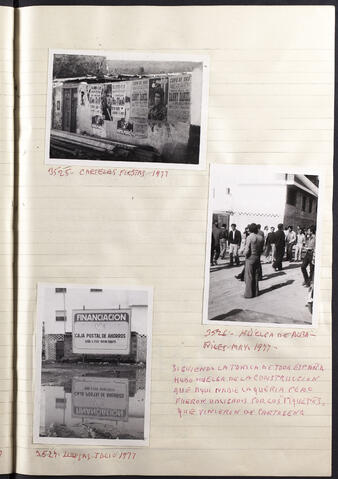 3525- CARTELES FIESTAS-1977
3526- HUELGA DE ALBA-
ÑILES-MAY. 1977-
SIGUIENDO LA TONICA DE TODA ESPAÑA
HUBO HUELGA DE LA CONSTRUCCION
QUE AQUI NADIE LA QUERIA PERO
FUERON OBLIGADOS POR LOS PIQUETES,
QUE VINIERON DE CARTAGENA
FINANCIACION
CAJA POSTAL DE AHORROS
3527- LLUVIAS-JULIO 1977